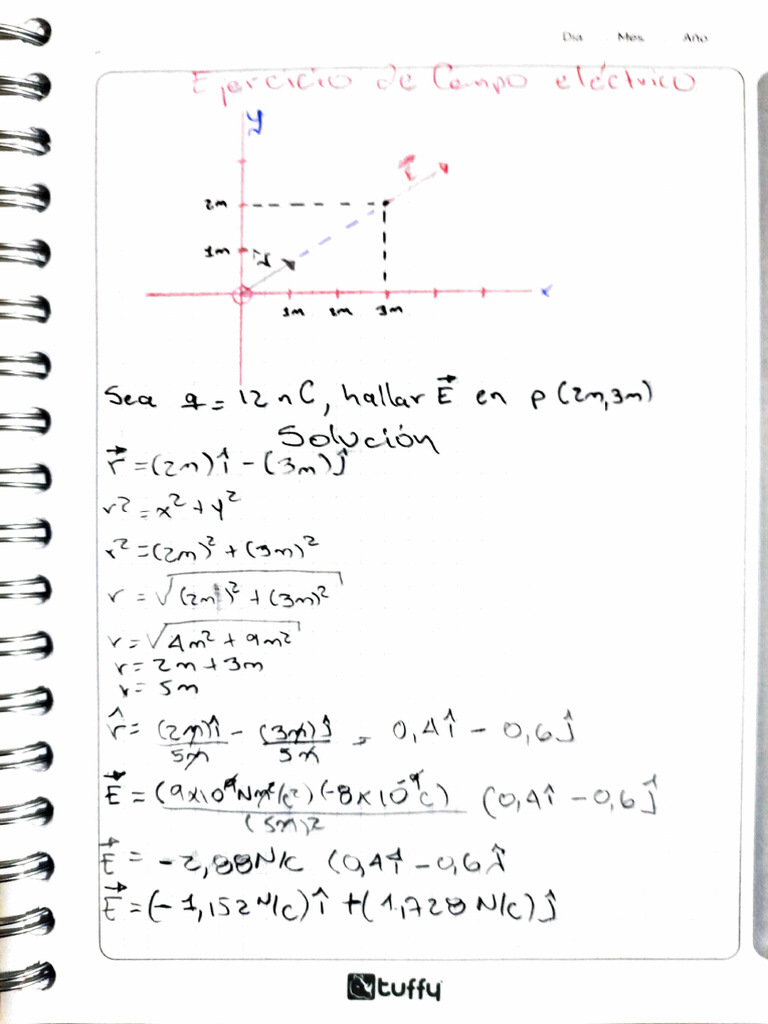 Dia Mes Año
Ejercicio de Campo eléctrico
y
2m
1m
x
1m 2m 3m
Sea q = 12 nC, hallar E⃗ en p (2m,3m)
Solución
r⃗ = (2m)î - (3m)ĵ
r² = x² + y²
r² = (2m)² + (3m)²
r = √(2m)² + (3m)²
r = √4m² + 9m²
r = 2m + 3m
r = 5m
r̂ = (2m)î/5m - (3m)ĵ/5m = 0,4î - 0,6ĵ
E⃗ = (9x10⁹Nm²/c²)(-8x10⁻⁹c)/(5m)² (0,4î - 0,6ĵ
E⃗ = -2,88N/c (0,4î - 0,6ĵ
E⃗ = (-1,152N/c)î + (1,728N/c)ĵ
tuffy